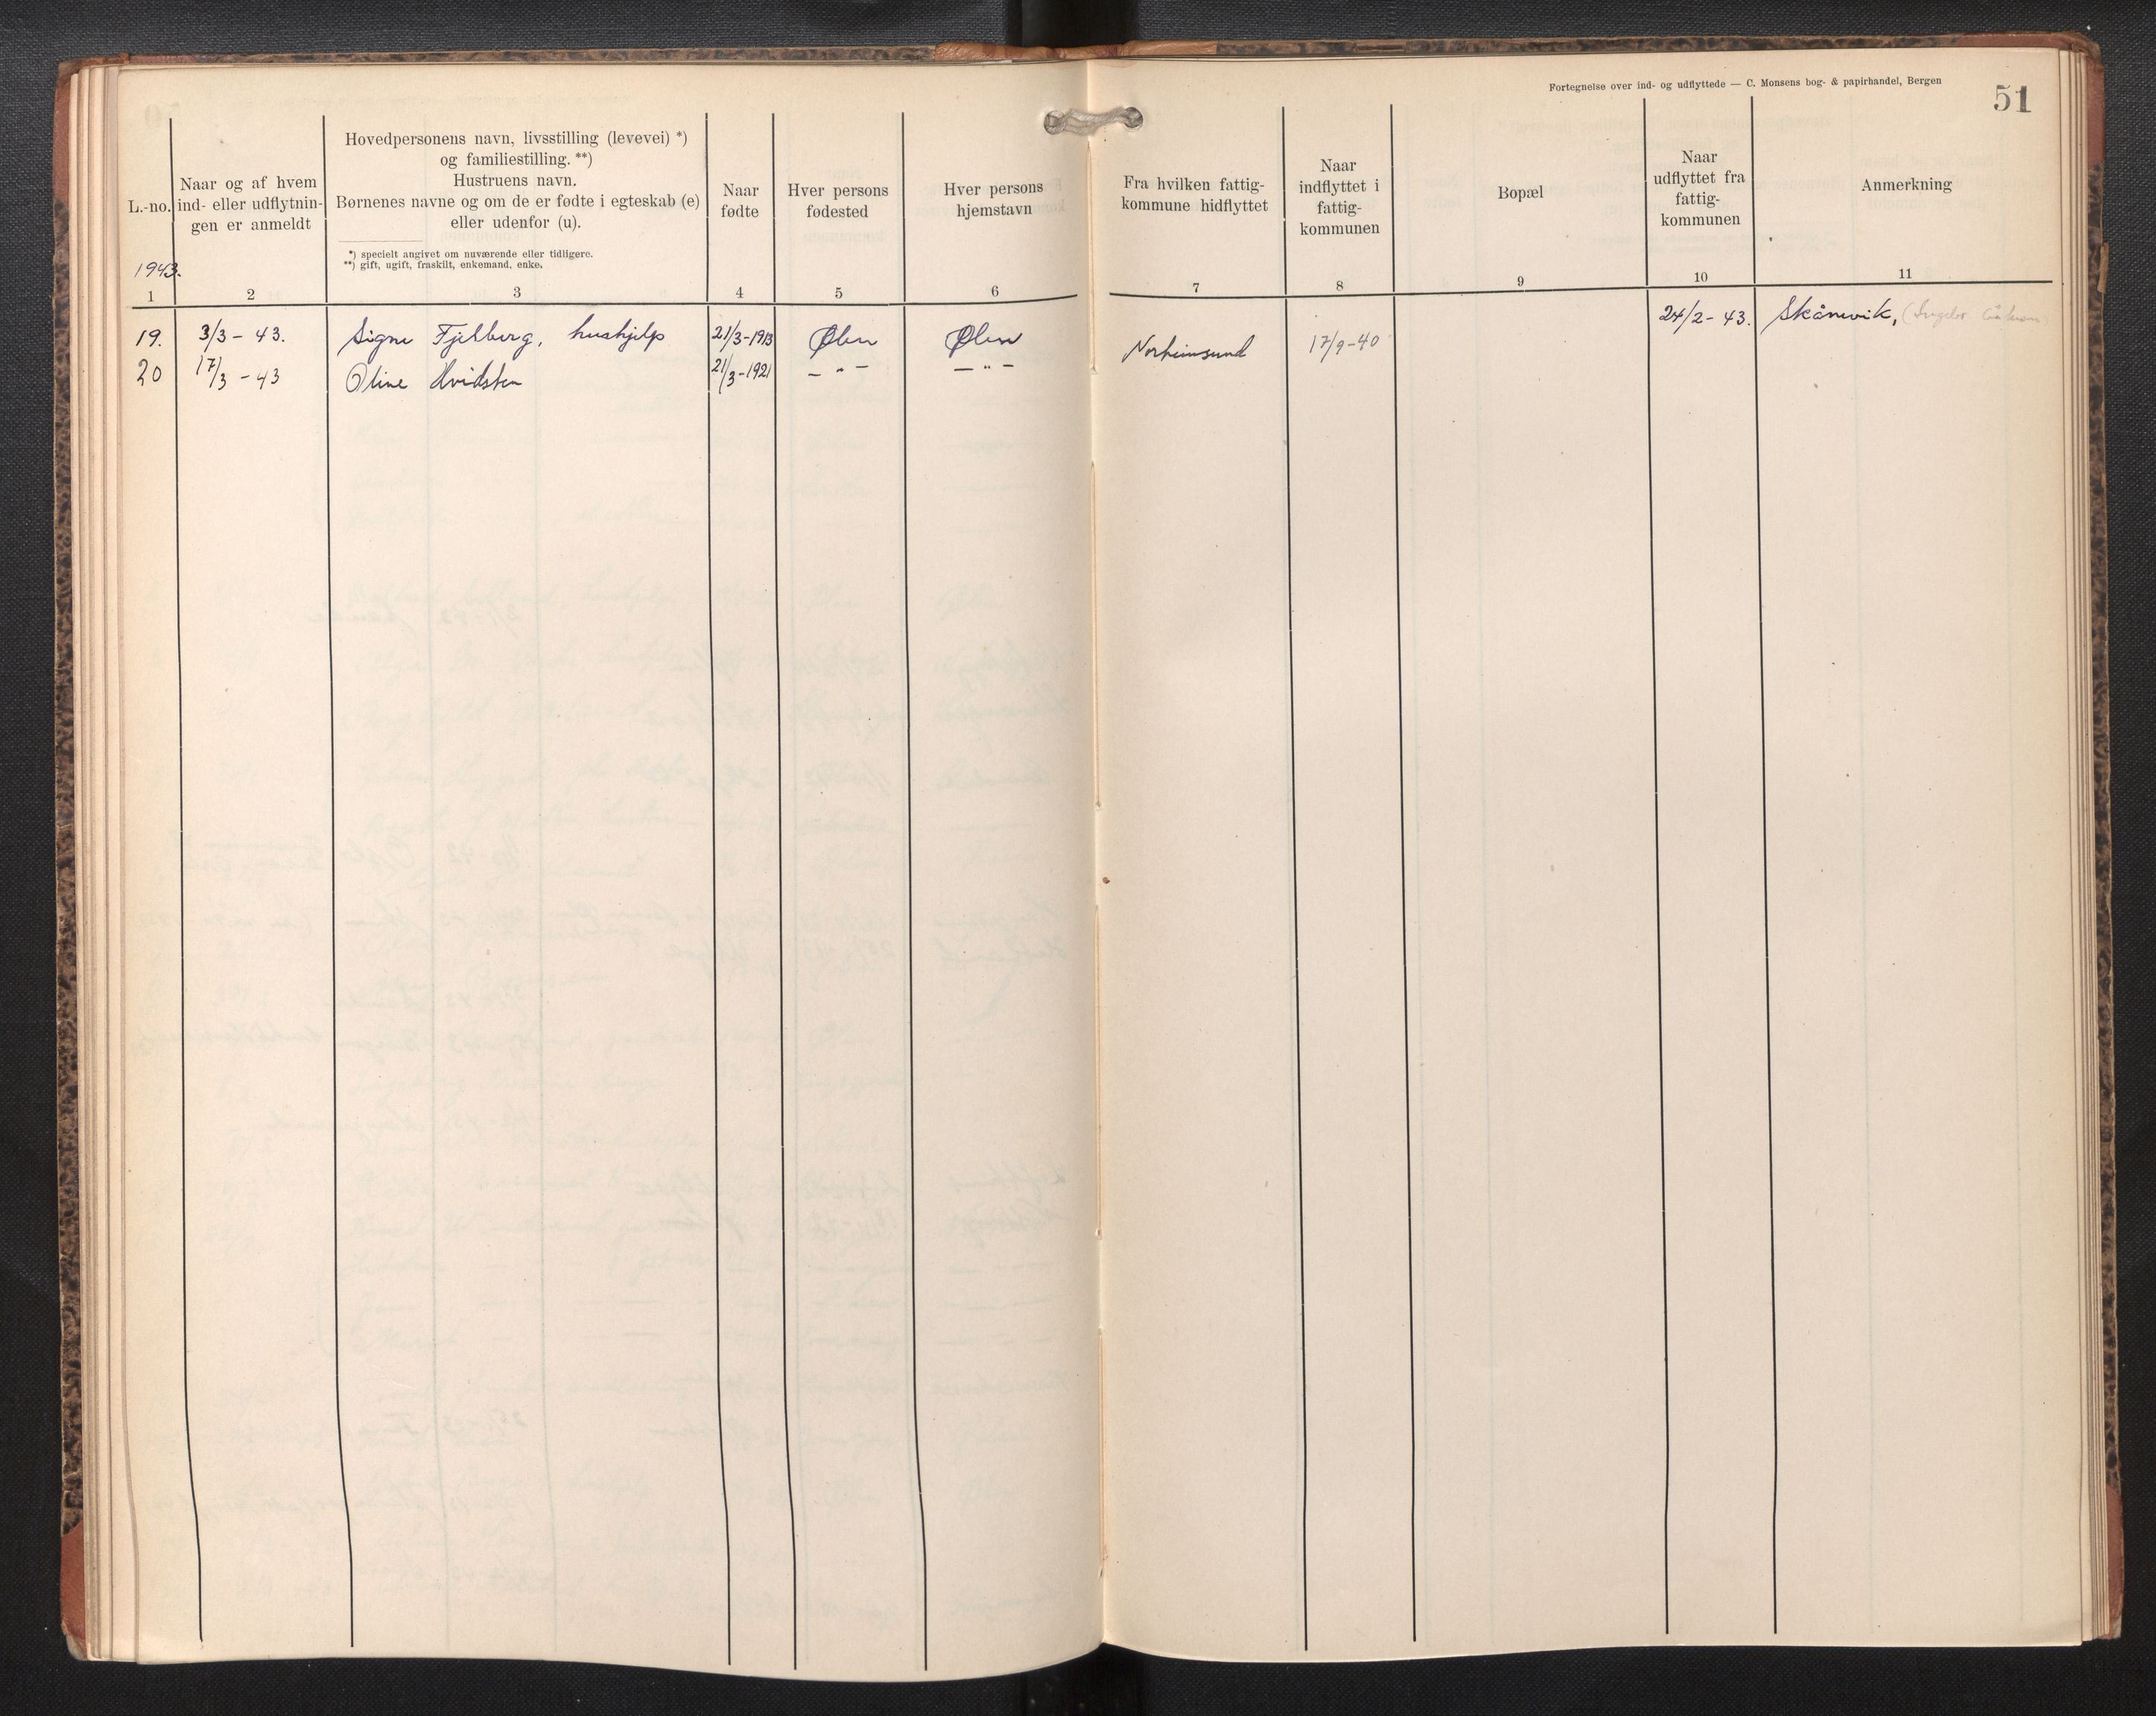 Fortegnelse over ind- og udflyttede — C. Monsens bog- & papirhandel, Bergen
51
L.-no.
1943.
Naar og af hvem
ind- eller udflytnin-
gen er anmeldt
Hovedpersonens navn, livsstilling (levevei) *)
og familiestilling. **)
Hustruens navn.
Børnenes navne og om de er fødte i egteskab (e)
eller udenfor (u).
*) specielt angivet om nuværende eller tidligere.
**) gift, ugift, fraskilt, enkemand, enke.
Naar
fødte
Hver persons
fødested
Hver persons
hjemstavn
Fra hvilken fattig-
kommune hidflyttet
Naar
indflyttet i
fattig-
kommunen
Bopæl
Naar
udflyttet fra
fattig-
kommunen
Anmerkning
1 2 3 4 5 6 7 8 9 10 11
19. 3/3 - 43. Signe Fjelberg, hushjelp 21/3-1913 Ølen Ølen 24/2-43. Skånevik,
20 17/3 - 43 Oline Hvidsten 21/3-1921 — " — — " — Norheimsund 17/9-40